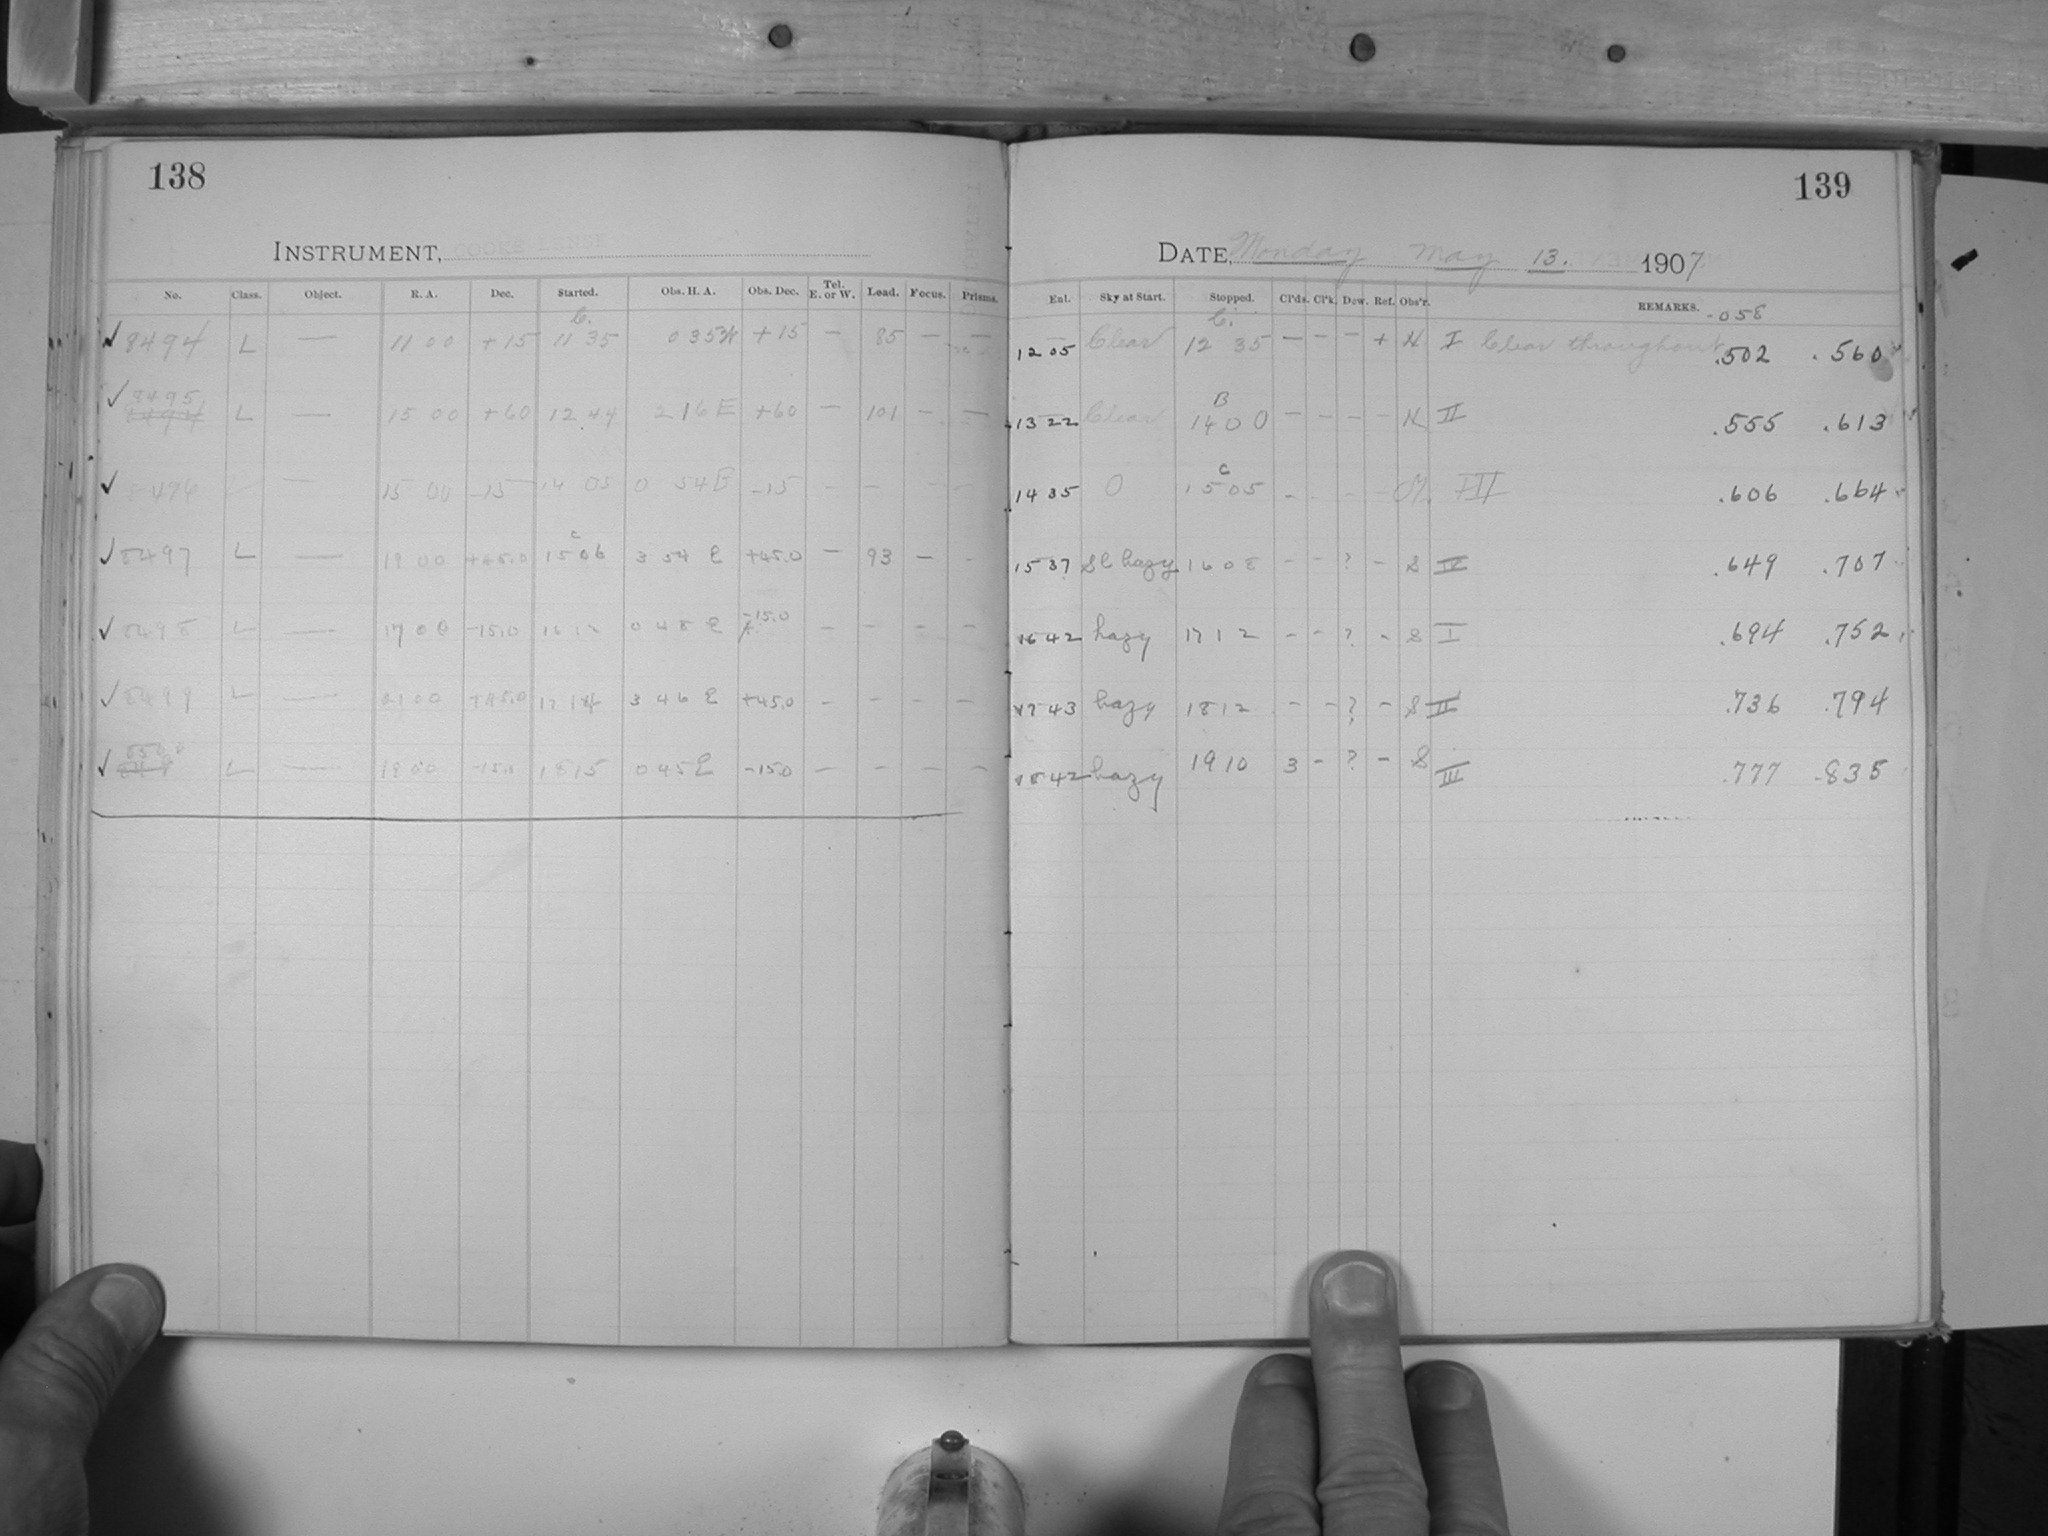 138
INSTRUMENT, COOKE LENSE
No. Class. Object. R. A. Dec. Started. Obs. H. A. Obs. Dec. Tel. E. or W. Load. Focus. Prisms.
C.
✓ 8494 L — 11 00 +15 11 35 0 35 W +15 — 85 — —
8495
✓ 8494 L — 15 00 +60 12 44 2 16 E +60 — 101 — —
✓ 8496 — 15 00 -15 14 05 0 54 E -15 — — — —
C
✓ 8497 L — 19 00 +45.0 15 06 3 54 E +45.0 — 93 — -
✓ 8498 L — 17 00 -15.0 16 12 0 48 E -15.0 — - - -
✓ 8499 L — 21 00 +45.0 17 14 3 46 E +45.0 - - - -
8500
✓ L — 19 00 -15.0 18 15 0 45 E -15.0 — - - -
139
DATE, Monday May 13. 1907
Ent. Sky at Start. Stopped. Cl'ds. Cl'k. Dew. Ref. Obs'r. REMARKS.
-058
C.
12 05 Clear 12 35 — — — + H I Clear throughout .502 .560
B
13 22 Clear 14 00 — — — — H II .555 .613
C
14 35 0 15 05 - - - - III .606 .664
15 37 Sl hazy 16 08 - - ? - S IV .649 .707
16 42 hazy 17 12 - - ? - S I .694 .752
17 43 hazy 18 12 - - ? - S II .736 .794
18 42 hazy 19 10 3 - ? - S III .777 .835